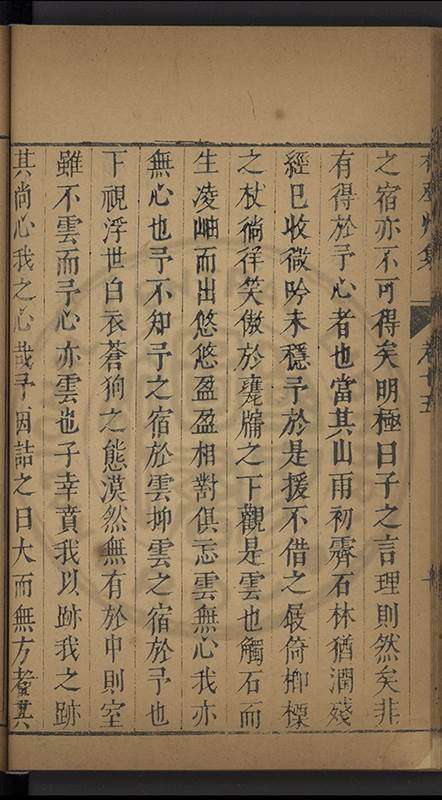 卷十五
之宿亦不可得矣明極曰子之言理則然矣非
有得於予心者也當其山雨初霽石林猶潤殘
經已收微吟未穩予於是援不借之屐倚楖㮚
之杖徜徉笑傲於甕牖之下觀是雲也觸石而
生凌岫而出悠悠盈盈相對俱忘雲無心我亦
無心也予不知予之宿於雲抑雲之宿於予也
下視浮世白衣蒼狗之態漠然無有於中則室
雖不雲而予心亦雲也子幸賁我以跡我之跡
其尚心我之心哉予因詰之曰大而無方
其